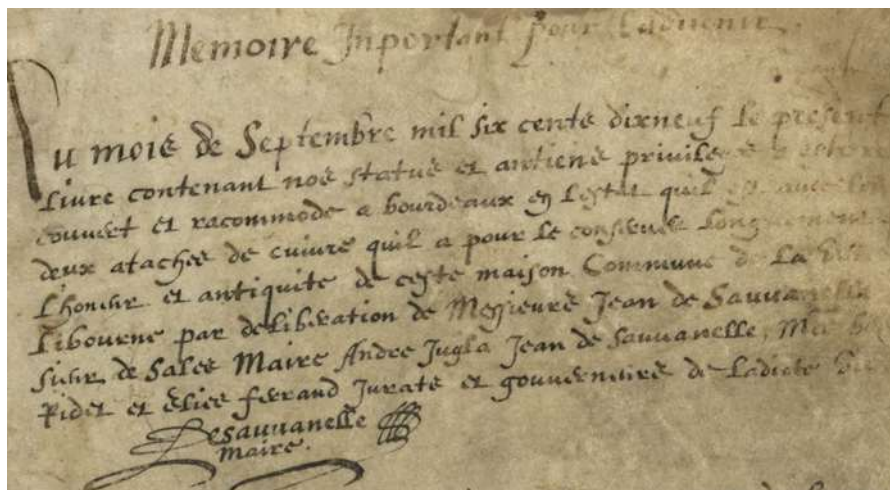 Memoire Inportant pour Ladvenir
Du mois de Septembre mil six cents dixneuf Le present
Livre contenant nos statuts et antiens privileges a este re
couvert et racommode a bourdeaux en Lestat quil est avec
deux ataches de cuivre quil a pour Le conserver Longuement
Lhoneur et antiquite de ceste maison Commune de La
Libourne par deliberation de Messieurs Jean de Sauvanelle
sieur de Sales Maire Andre Jugla Jean de Sauvanelle, 
Ridet et Elies ferrand Jurats et gouverneurs de Ladicte
Desauvanelle
maire.